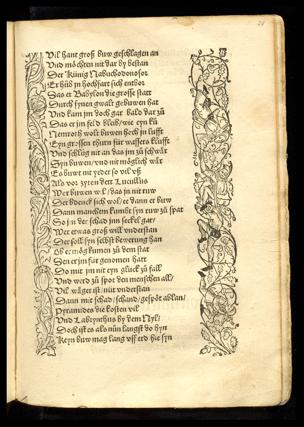 Vil hant groß buw geschlagen an
Vnd möchten nit dar by bestan
Der Künig Nabuchodonosor
Erhůb jn hochfart sich entbor
Das er Babylon die grosse statt
Durch synen gwalt gebuwen hat
Vnd kam jm doch gar bald dar zů
Das er jm feld bleib / wie eyn ků
Nemroth wolt buwen hoch jn lufft
Eyn grossen thurn für wassers klufft
Vnd schlůg nit an das jm zů schwär
Syn buwen / vnd nit möglich wär
Es buwt nit yeder so vil vß
Als vor zyten dett Lucullus
Wer buwen will / das jn nit ruw
Der bdenck sich wol / ee dann er buw
Dann manchem kumbt syn ruw zů spat
So jn der schad jnn seckel gat /
Wer ettwas groß will vnderstan
Der soll syn selbst bewerung han
Ob er mög kumen zů dem stat
Den er jm für genomen hatt
Do mit jm nit eyn glück zů fall
Vnd werd zů spot den menschen all /
Vil wäger ist / nüt vnderstan
Dann mit schad / schand / gespöt ablan /
Pyramides die kosten vil
Vnd Labyrinthus by dem Nyl /
Doch ist es als nůn langst do hyn
Keyn buw mag lang vff erd hie syn